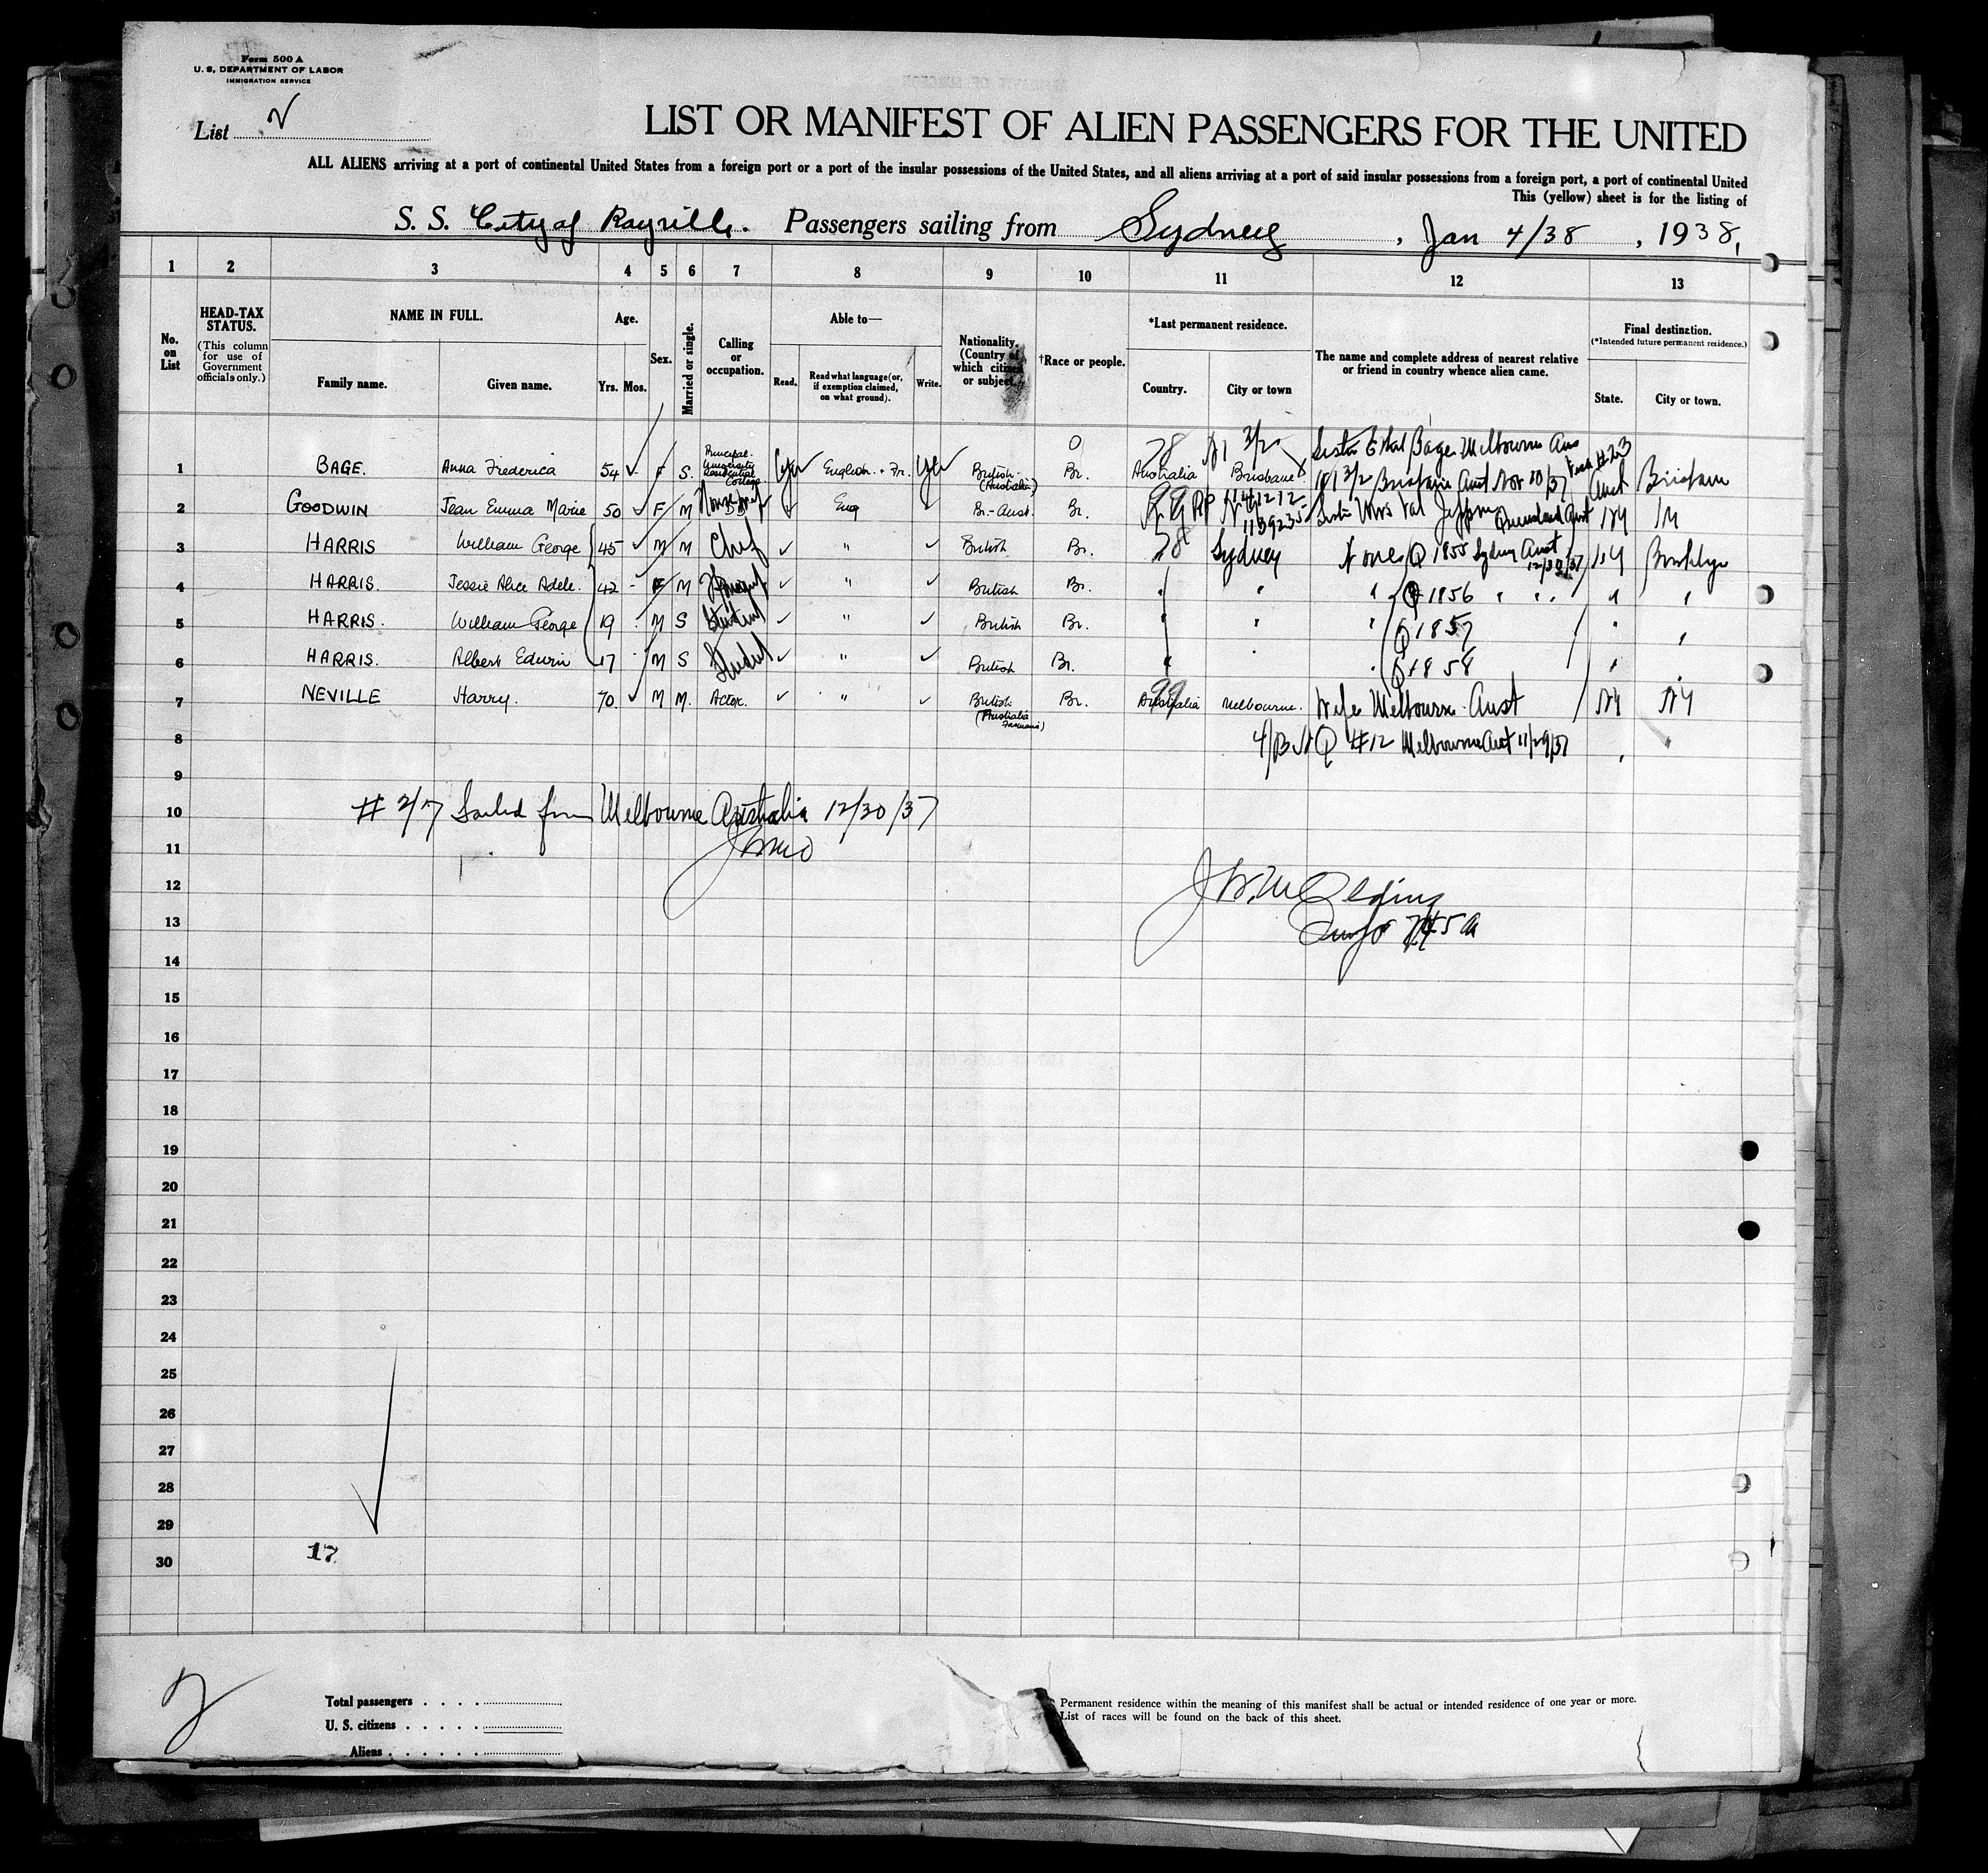 Form 500 A
U. S. DEPARTMENT OF LABOR
IMMIGRATION SERVICE
List
LIST OR MANIFEST OF ALIEN PASSENGERS FOR THE UNITED
ALL ALIENS arriving at a port of continental United States from a foreign port or a port of the insular possessions of the United States, and all aliens arriving at a port of said insular possessions from a foreign port, a port of continental United
This (yellow) sheet is for the listing of
S. S. City of Rayville. Passengers sailing from Sydney, Jan 4/38, 1938,
1 2 3 4 5 6 7 8 9 10 11 12 13
No. on List
HEAD-TAX STATUS.
(This column for use of Government officials only.)
NAME IN FULL.
Family name. Given name.
Age.
Yrs. Mos.
Sex.
Married or single.
Calling or occupation.
Able to—
Read. Read what language (or, if exemption claimed, on what ground). Write.
Nationality. (Country of which citizen or subject.
†Race or people.
*Last permanent residence.
Country. City or town
The name and complete address of nearest relative or friend in country whence alien came.
Final destination.
(*Intended future permanent residence.)
State. City or town.
1 BAGE. Anna Frederica 54 F S. Principal University Residential College Yes English + Fr. Yes British (Australia) Br. 78 Australia Brisbane Sister Ethel Bage Melbourne Aus
Brisbane Aust Nov 30/37 Aust Brisbane
2 GOODWIN Jean Emma Marie 50 F M Eng Br-Aust. Br. 99 RP 1139235 Sister Mrs Val Queensland Aust NY NY
3 HARRIS William George 45 M M Chef " British Br. 78 Sydney None Q 1855 Sydney Aust 12/30/37 NY Brooklyn
4 HARRIS. Jessie Alice Adele. 42 F M " British Br. " Q 1856 " " " "
5 HARRIS. William George 19 M S Student " British Br. " " " Q 1857 "
6 HARRIS. Albert Edwin 17 M S Student " British Br. " Q 1858 "
7 NEVILLE Harry. 70. M M. Actor. " British (Australia Tasmania) Br. 99 Australia Melbourne. Wife Melbourne Aust NY NY
8 Q #12 Melbourne Aust 11/29/37 " "
9
10 # 2/7 Sailed from Melbourne Australia 12/30/37
11
12
13
14
15
16
17
18
19
20
21
22
23
24
25
26
27
28
29
30
17
2
Total passengers
U. S. citizens
Aliens
Permanent residence within the meaning of this manifest shall be actual or intended residence of one year or more.
List of races will be found on the back of this sheet.